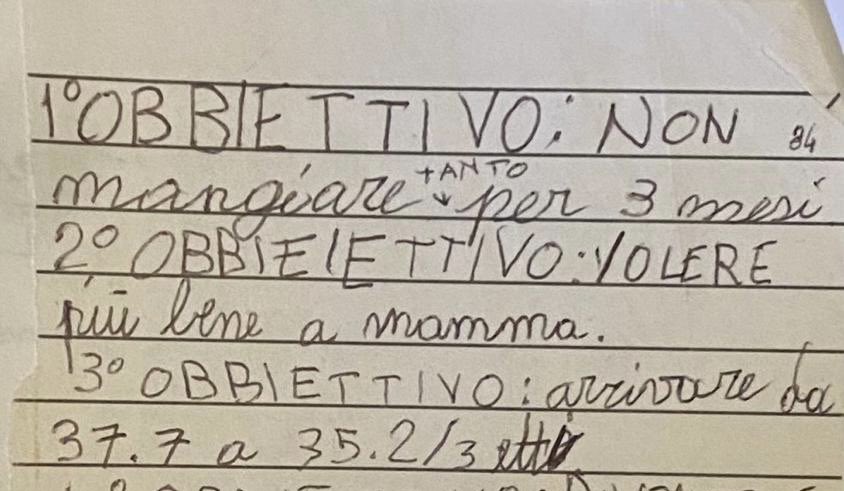 1° OBBIETTIVO: NON 34
mangiare tANTO per 3 mesi
2° OBBIEIETTIVO: VOLERE
più bene a mamma.
3° OBBIETTIVO: arrivare da
37.7 a 35.2/3 etti